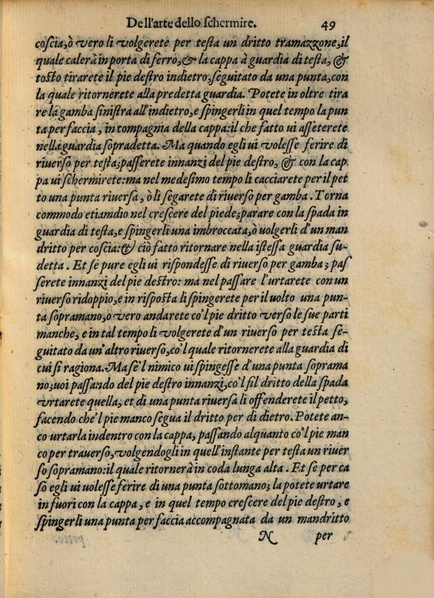 Dell'arte dello schermire. 49
coscia, ò vero li volgerete per testa un dritto tramazzone, il
quale calerà in porta di ferro, & la cappa à guardia di testa, &
tosto tirarete il pie destro indietro, seguitato da una punta, con
la quale ritornerete alla predetta guardia. Potete in oltre tira
re la gamba sinistra all'indietro, e spingerli in quel tempo la pun
ta per faccia, in compagnia della cappa: il che fatto vi assetterete
nella guardia sopradetta. Ma quando egli ui volesse ferire di
riuerso per testa; passerete innanzi del pie destro, & con la cap
pa vi schermirete: ma nel medesimo tempo li cacciarete per il pet
to una punta riuersa, ò li segarete di riuerso per gamba. Torna
commodo etiamdio nel crescere del piede; parare con la spada in
guardia di testa, e spingerli una imbroccata, ò volgerli d'un man
dritto per coscia: & ciò fatto ritornare nella istessa guardia su-
detta. Et se pure egli ui rispondesse di riuerso per gamba; pas
serete innanzi del pie destro: ma nel passare l'urtarete con un
riuerso ridoppio, e in risposta li spingerete per il volto una pun-
ta sopramano, o vero andarete co'l pie dritto verso le sue parti
manche, e in tal tempo li volgerete d'un riuerso per testa se-
guitato da un'altro riuerso, co'l quale ritornerete alla guardia di
cui si ragiona. Ma se'l nimico ui spingesse d'una punta soprama
no; uoi passando del pie destro innanzi, co'l fil dritto della spada
vrtarete quella, et di una punta riuersa li offenderete il petto,
facendo che'l pie manco segua il dritto per di dietro. Potete anc
o urtarla indentro con la cappa, passando alquanto co'l pie man
co per trauerso, volgendogli in quell'instante per testa un riuer
so sopramano: il quale ritornerà in coda lunga alta. Et se per ca
so egli ui uolesse ferire di una punta sottomano; la potete urtare
in fuori con la cappa, e in quel tempo crescere del pie destro, e
spingerli una punta per faccia accompagnata da un mandritto
N per